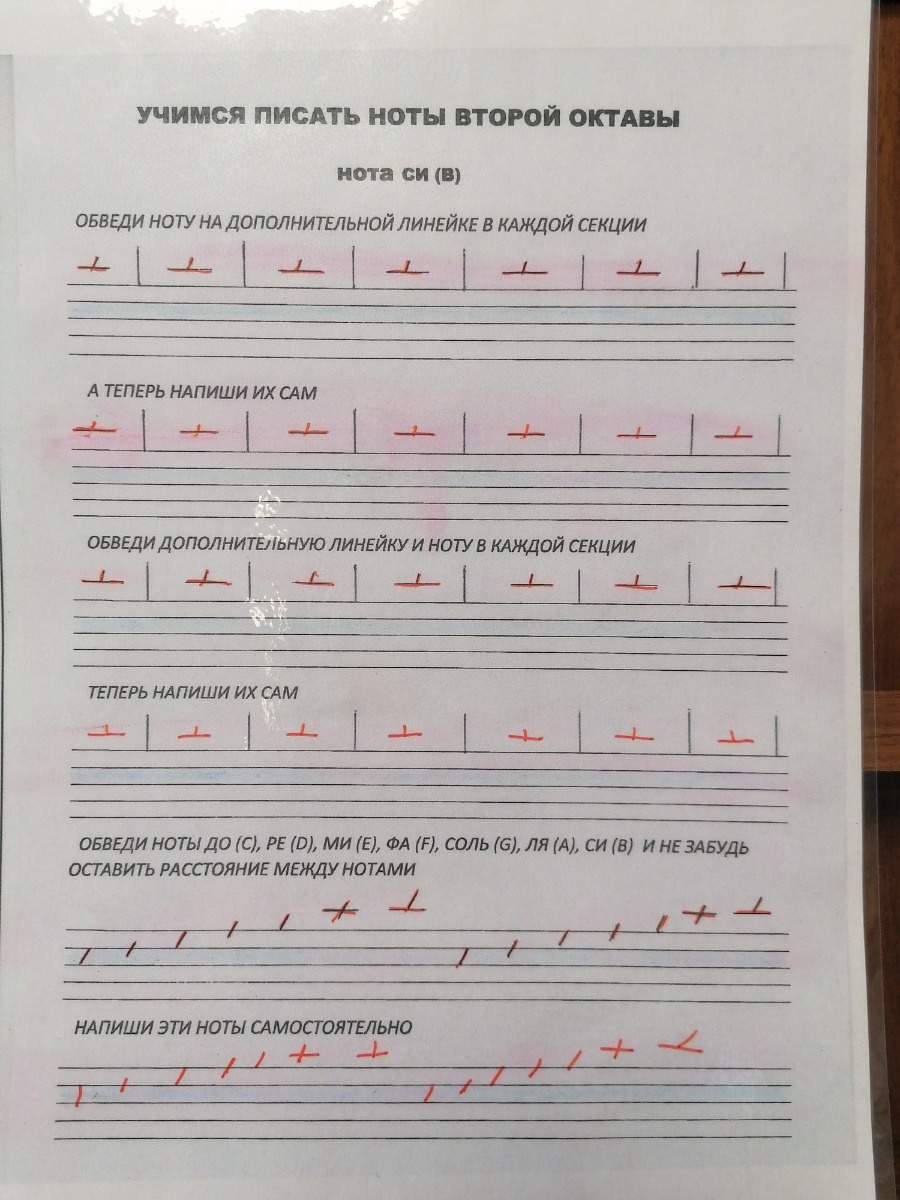 УЧИМСЯ ПИСАТЬ НОТЫ ВТОРОЙ ОКТАВЫ
нота си (В)
ОБВЕДИ НОТУ НА ДОПОЛНИТЕЛЬНОЙ ЛИНЕЙКЕ В КАЖДОЙ СЕКЦИИ
А ТЕПЕРЬ НАПИШИ ИХ САМ
ОБВЕДИ ДОПОЛНИТЕЛЬНУЮ ЛИНЕЙКУ И НОТУ В КАЖДОЙ СЕКЦИИ
ТЕПЕРЬ НАПИШИ ИХ САМ
ОБВЕДИ НОТЫ ДО (C), РЕ (D), МИ (E), ФА (F), СОЛЬ (G), ЛЯ (A), СИ (B) И НЕ ЗАБУДЬ
ОСТАВИТЬ РАССТОЯНИЕ МЕЖДУ НОТАМИ
НАПИШИ ЭТИ НОТЫ САМОСТОЯТЕЛЬНО